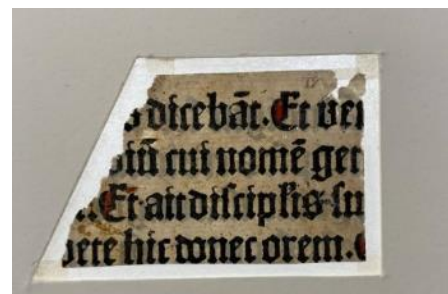 s dicebāt. Et ven
diū cui nomē get
. Et ait discipl'is su
dete hic donec orem.